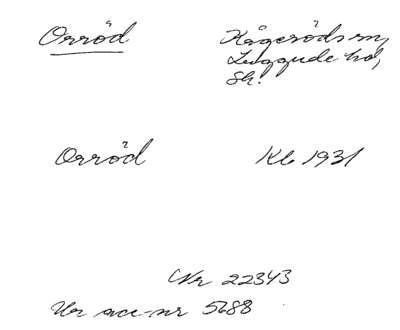 Orröd Kågeröds sn,
Luggude hd,
Sk.
Orröd Kb 1931
Nr 22343
Ur acc-nr 5688